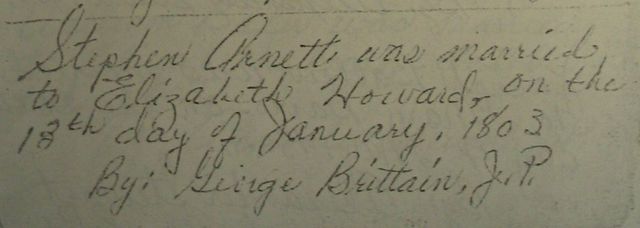 Stephen Arnett was married
to Elizabeth Howard, on the
13th day of January, 1803
By: George Brittain, J.P.